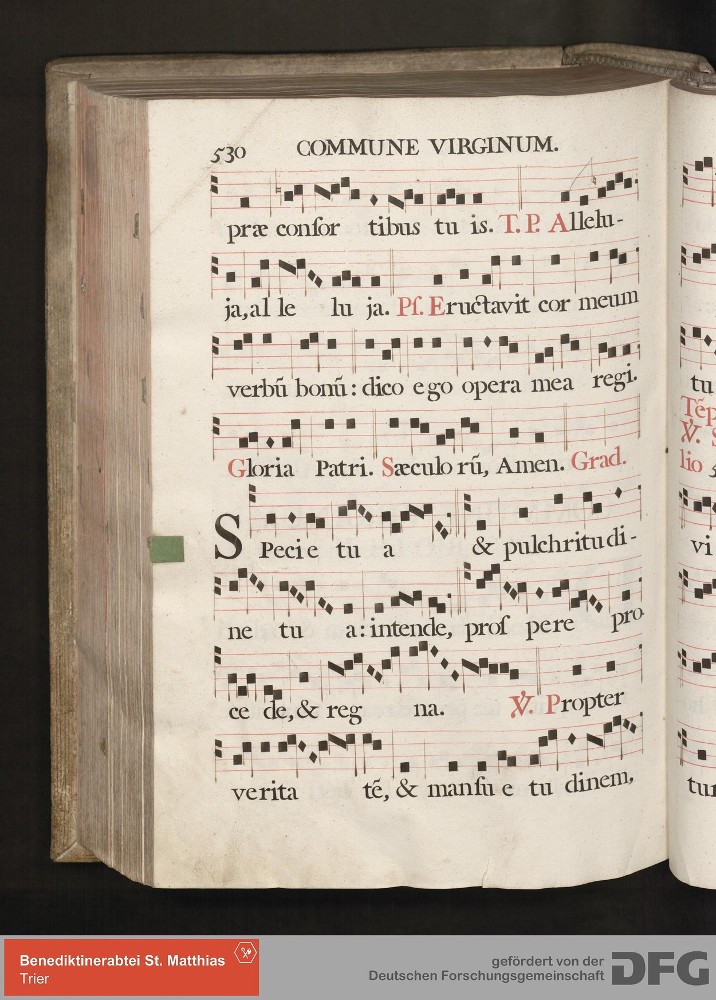 530 COMMUNE VIRGINUM.
præ consor tibus tu is. T. P. Allelu-
ja, al le lu ja. Ps. Eructavit cor meum
verbũ bonũ : dico ego opera mea regi.
Gloria Patri. Sæculo rũ, Amen. Grad.
SPecie tu a & pulchritudi-
ne tu a: intende, prospere pro-
ce de, & reg na. ℣. Propter
verita tẽ, & mansue tu dinem,
tu
Tẽp
℣. S
lio 5
vi
tur
Benediktinerabtei St. Matthias
Trier
gefördert von der
Deutschen Forschungsgemeinschaft DFG